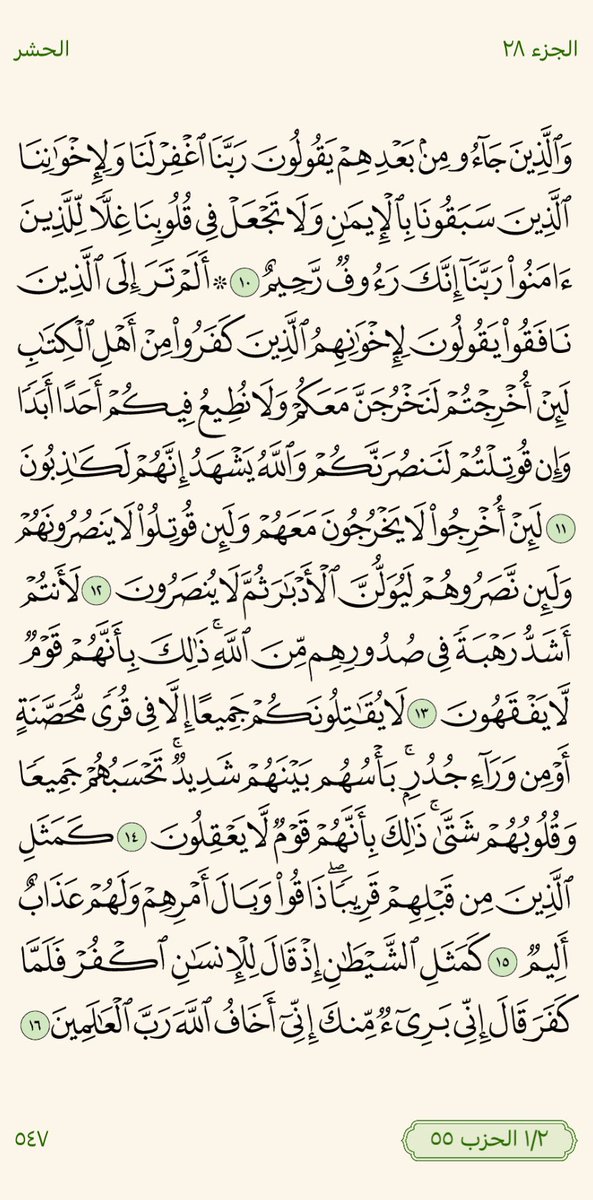 الجزء ٢٨
الحشر
وَٱلَّذِينَ جَآءُو مِنۢ بَعۡدِهِمۡ يَقُولُونَ رَبَّنَا ٱغۡفِرۡ لَنَا وَلِإِخۡوَٰنِنَا
ٱلَّذِينَ سَبَقُونَا بِٱلۡإِيمَٰنِ وَلَا تَجۡعَلۡ فِي قُلُوبِنَا غِلّٗا لِّلَّذِينَ
ءَامَنُواْ رَبَّنَآ إِنَّكَ رَءُوفٞ رَّحِيمٌ ١٠ ۞ أَلَمۡ تَرَ إِلَى ٱلَّذِينَ
نَافَقُواْ يَقُولُونَ لِإِخۡوَٰنِهِمُ ٱلَّذِينَ كَفَرُواْ مِنۡ أَهۡلِ ٱلۡكِتَٰبِ
لَئِنۡ أُخۡرِجۡتُمۡ لَنَخۡرُجَنَّ مَعَكُمۡ وَلَا نُطِيعُ فِيكُمۡ أَحَدًا أَبَدٗا
وَإِن قُوتِلۡتُمۡ لَنَنصُرَنَّكُمۡ وَٱللَّهُ يَشۡهَدُ إِنَّهُمۡ لَكَٰذِبُونَ
١١ لَئِنۡ أُخۡرِجُواْ لَا يَخۡرُجُونَ مَعَهُمۡ وَلَئِن قُوتِلُواْ لَا يَنصُرُونَهُمۡ
وَلَئِن نَّصَرُوهُمۡ لَيُوَلُّنَّ ٱلۡأَدۡبَٰرَ ثُمَّ لَا يُنصَرُونَ ١٢ لَأَنتُمۡ
أَشَدُّ رَهۡبَةٗ فِي صُدُورِهِم مِّنَ ٱللَّهِۚ ذَٰلِكَ بِأَنَّهُمۡ قَوۡمٞ
لَّا يَفۡقَهُونَ ١٣ لَا يُقَٰتِلُونَكُمۡ جَمِيعًا إِلَّا فِي قُرٗى مُّحَصَّنَةٍ
أَوۡ مِن وَرَآءِ جُدُرِۭۚ بَأۡسُهُم بَيۡنَهُمۡ شَدِيدٞۚ تَحۡسَبُهُمۡ جَمِيعٗا
وَقُلُوبُهُمۡ شَتَّىٰۚ ذَٰلِكَ بِأَنَّهُمۡ قَوۡمٞ لَّا يَعۡقِلُونَ ١٤ كَمَثَلِ
ٱلَّذِينَ مِن قَبۡلِهِمۡ قَرِيبٗاۖ ذَاقُواْ وَبَالَ أَمۡرِهِمۡ وَلَهُمۡ عَذَابٌ
أَلِيمٞ ١٥ كَمَثَلِ ٱلشَّيۡطَٰنِ إِذۡ قَالَ لِلۡإِنسَٰنِ ٱكۡفُرۡ فَلَمَّا
كَفَرَ قَالَ إِنِّي بَرِيٓءٞ مِّنكَ إِنِّيٓ أَخَافُ ٱللَّهَ رَبَّ ٱلۡعَٰلَمِينَ ١٦
١/٢ الحزب ٥٥
٥٤٧